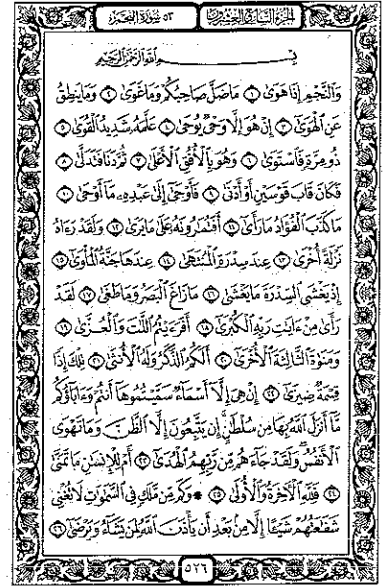 الجزء السابع والعشرون ٥٣ سورة النجم
بسم الله الرحمن الرحيم
وَالنَّجْمِ إِذَا هَوَىٰ ١ مَا ضَلَّ صَاحِبُكُمْ وَمَا غَوَىٰ ٢ وَمَا يَنطِقُ
عَنِ الْهَوَىٰ ٣ إِنْ هُوَ إِلَّا وَحْيٌ يُوحَىٰ ٤ عَلَّمَهُ شَدِيدُ الْقُوَىٰ ٥
ذُو مِرَّةٍ فَاسْتَوَىٰ ٦ وَهُوَ بِالْأُفُقِ الْأَعْلَىٰ ٧ ثُمَّ دَنَا فَتَدَلَّىٰ ٨
فَكَانَ قَابَ قَوْسَيْنِ أَوْ أَدْنَىٰ ٩ فَأَوْحَىٰ إِلَىٰ عَبْدِهِ مَا أَوْحَىٰ ١٠
مَا كَذَبَ الْفُؤَادُ مَا رَأَىٰ ١١ أَفَتُمَارُونَهُ عَلَىٰ مَا يَرَىٰ ١٢ وَلَقَدْ رَءَاهُ
نَزْلَةً أُخْرَىٰ ١٣ عِندَ سِدْرَةِ الْمُنتَهَىٰ ١٤ عِندَهَا جَنَّةُ الْمَأْوَىٰ ١٥
إِذْ يَغْشَى السِّدْرَةَ مَا يَغْشَىٰ ١٦ مَا زَاغَ الْبَصَرُ وَمَا طَغَىٰ ١٧ لَقَدْ
رَأَىٰ مِنْ ءَايَٰتِ رَبِّهِ الْكُبْرَىٰ ١٨ أَفَرَءَيْتُمُ اللَّٰتَ وَالْعُزَّىٰ ١٩
وَمَنَوٰةَ الثَّالِثَةَ الْأُخْرَىٰ ٢٠ أَلَكُمُ الذَّكَرُ وَلَهُ الْأُنثَىٰ ٢١ تِلْكَ إِذًا
قِسْمَةٌ ضِيزَىٰ ٢٢ إِنْ هِيَ إِلَّا أَسْمَاءٌ سَمَّيْتُمُوهَا أَنتُمْ وَءَابَاؤُكُم
مَّا أَنزَلَ اللَّهُ بِهَا مِن سُلْطَٰنٍ إِن يَتَّبِعُونَ إِلَّا الظَّنَّ وَمَا تَهْوَى
الْأَنفُسُ وَلَقَدْ جَاءَهُم مِّن رَّبِّهِمُ الْهُدَىٰ ٢٣ أَمْ لِلْإِنسَٰنِ مَا تَمَنَّىٰ
٢٤ فَلِلَّهِ الْأَخِرَةُ وَالْأُولَىٰ ٢٥ ۞ وَكَم مِّن مَّلَكٍ فِي السَّمَٰوَٰتِ لَا تُغْنِي
شَفَٰعَتُهُمْ شَيْـًٔا إِلَّا مِن بَعْدِ أَن يَأْذَنَ اللَّهُ لِمَن يَشَاءُ وَيَرْضَىٰ ٢٦
٥٢٦